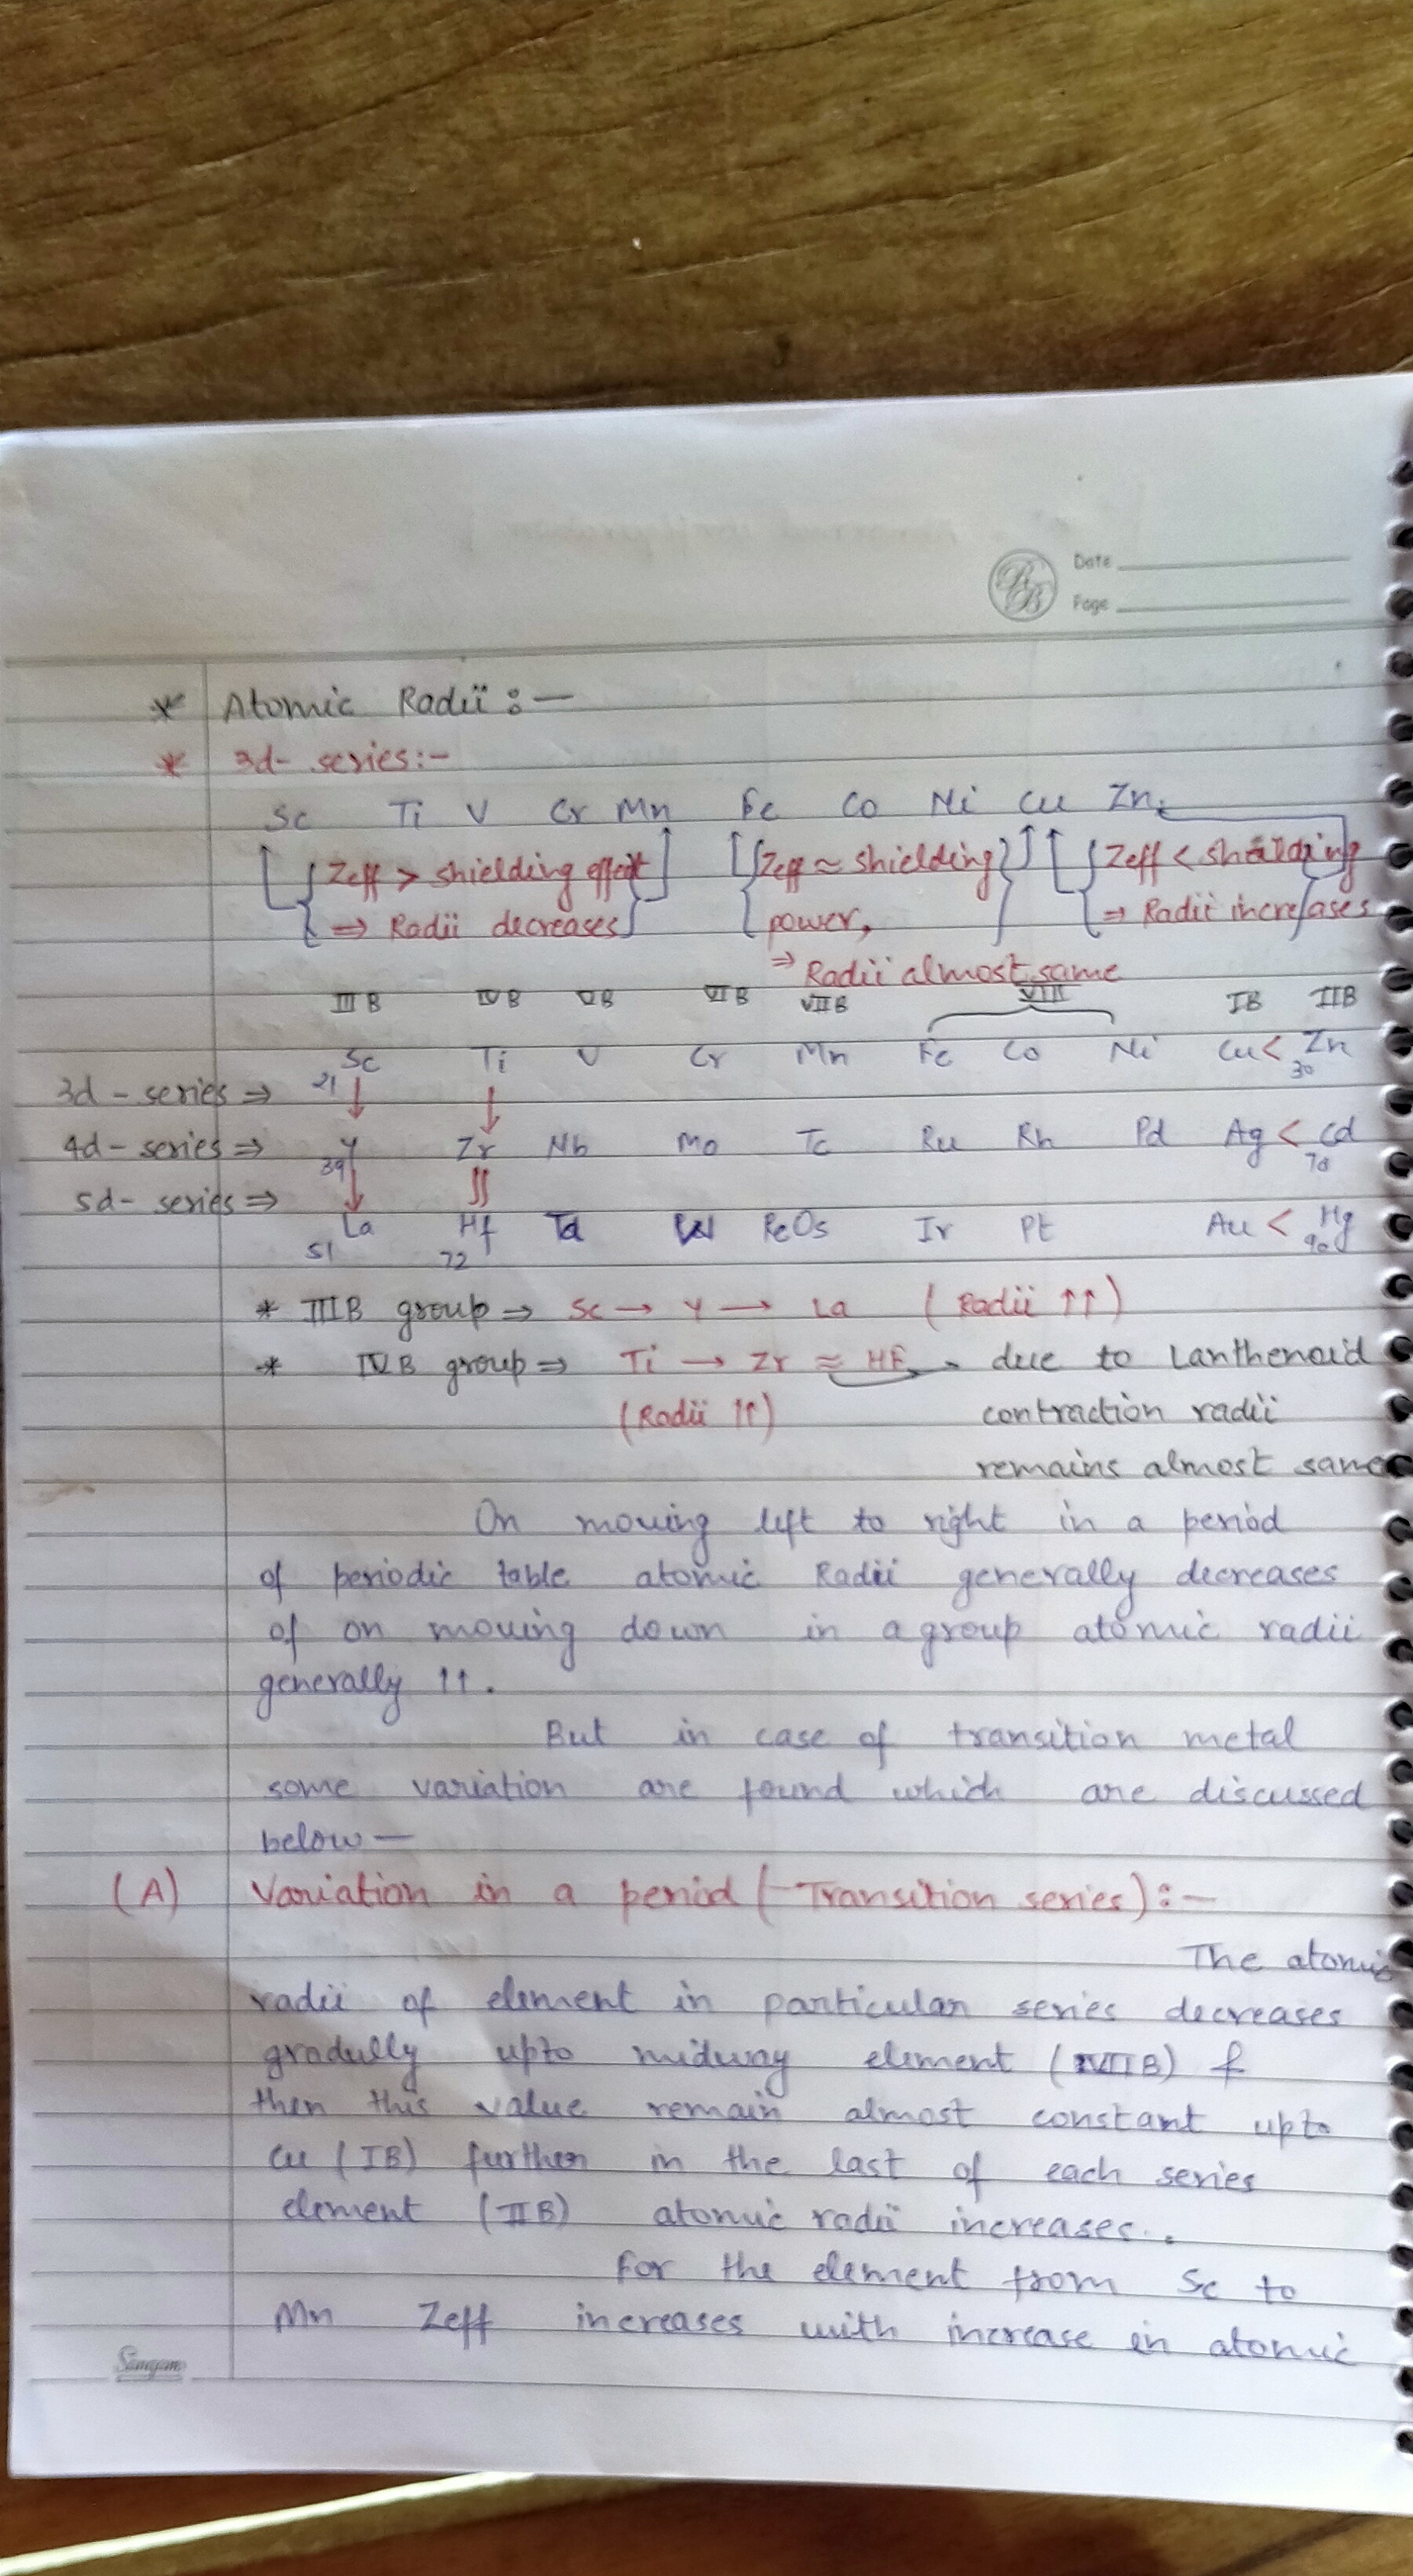 Date
Page
* Atomic Radii :-
* 3d- series:-
Sc Ti V Cr Mn Fe Co Ni Cu Zn
Zeff > shielding effect
⇒ Radii decreases
Zeff ≈ shielding
power,
⇒ Radii almost same
Zeff < shielding
⇒ Radii increases
III B IV B V B VI B VII B VIII IB IIB
Sc Ti V Cr Mn Fe Co Ni Cu < Zn
3d - series ⇒ 21 ↓ ↓ 30
4d - series ⇒ Y Zr Nb Mo Tc Ru Rh Pd Ag < Cd
39
5d - series ⇒
La Hf Ta W Re Os Ir Pt Au < Hg
51 72
* IIIB group ⇒ Sc → Y → La ( Radii ↑↑)
* IVB group ⇒ Ti → Zr ≈ Hf → due to Lanthenoid
(Radii ↑↑) contraction radii
remains almost same
On moving left to right in a period
of periodic table atomic Radii generally decreases
of on moving down in a group atomic radii
generally ↑↑.
But in case of transition metal
some variation are found which are discussed
below —
(A) Variation in a period (Transition series):-
The atomic
radii of element in particular series decreases
gradully upto midway element (VIIB) &
then this value remain almost constant upto
Cu (IB) further in the last of each series
element (IIB) atomic radii increases.
For the element from Sc to
Mn Zeff increases with increase in atomic
Sangam